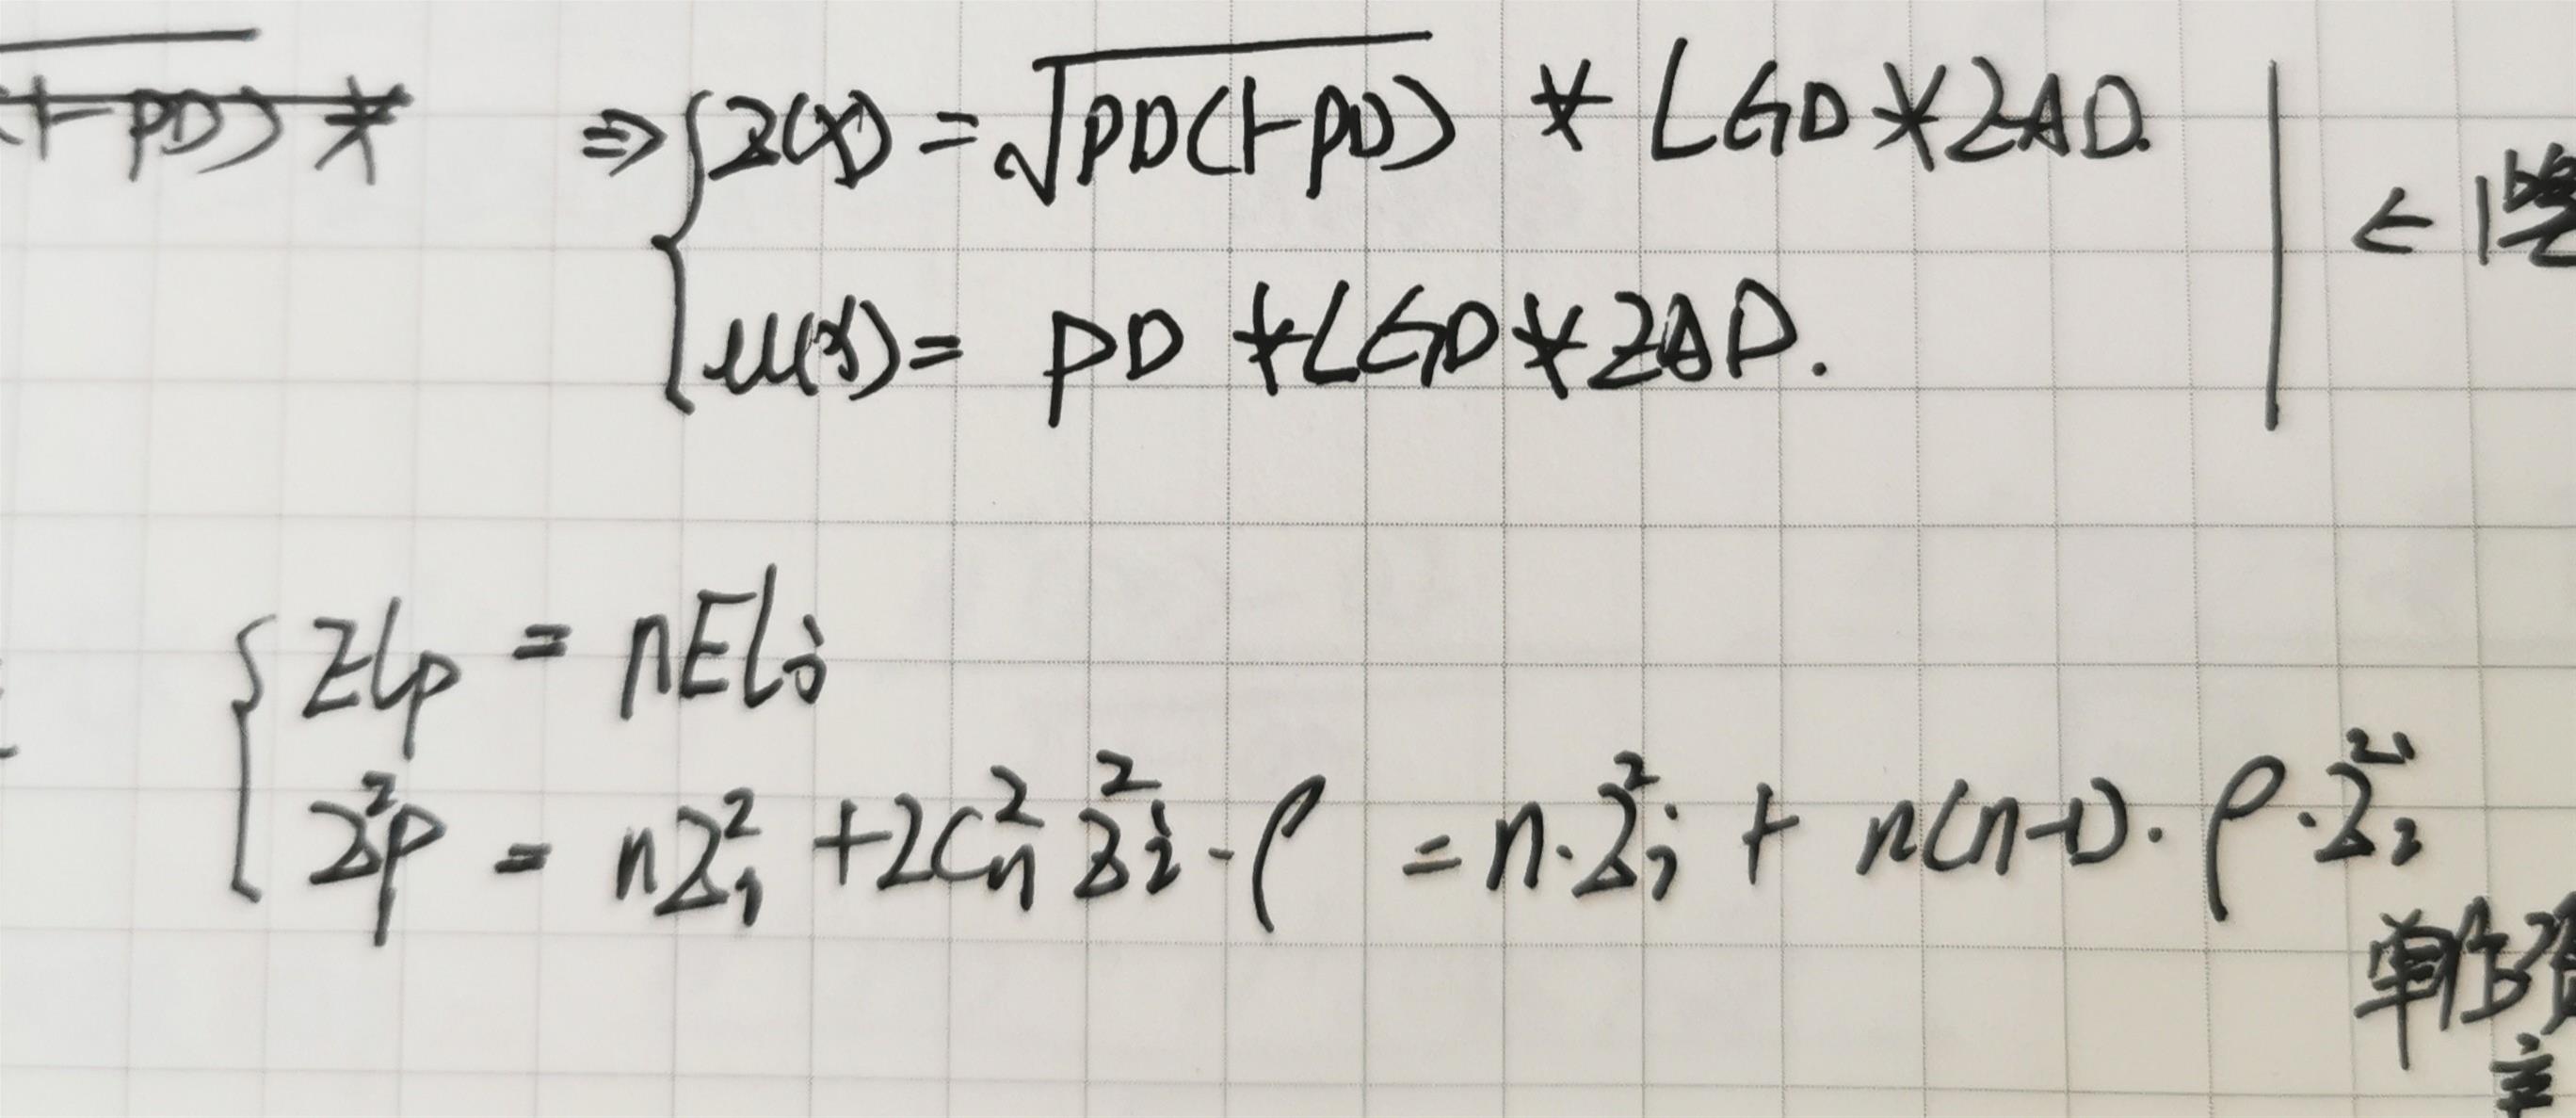 (1-PD) * ⇒ { Σ(x) = √PD(1-PD) * LGD * EAD.
μ(x) = PD * LGD * EAD.
{ ELp = nELi
Σ²p = nΣ²i + 2C²n Σ²i · ρ = n·Σ²i + n(n-1)·ρ·Σ²i
单